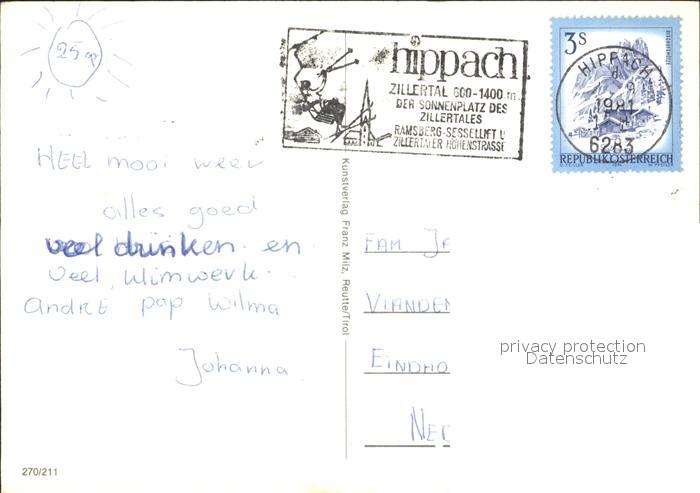 25 gr
hippach
ZILLERTAL 600-1400 m
DER SONNENPLATZ DES
ZILLERTALES
RAMSBERG-SESSELLIFT U
ZILLERTALER HÖHENSTRASSE
3S
HIPPACH
1981
6283
REPUBLIK ÖSTERREICH
HEEL mooi weer
alles goed
veel drinken en
veel klimwerk.
ANDRE pap Wilma
Johanna
Kunstverlag Franz Milz, Reutte/Tirol
FAM JE
VIANDEN
EINDHO
NED
privacy protection
Datenschutz
270/211